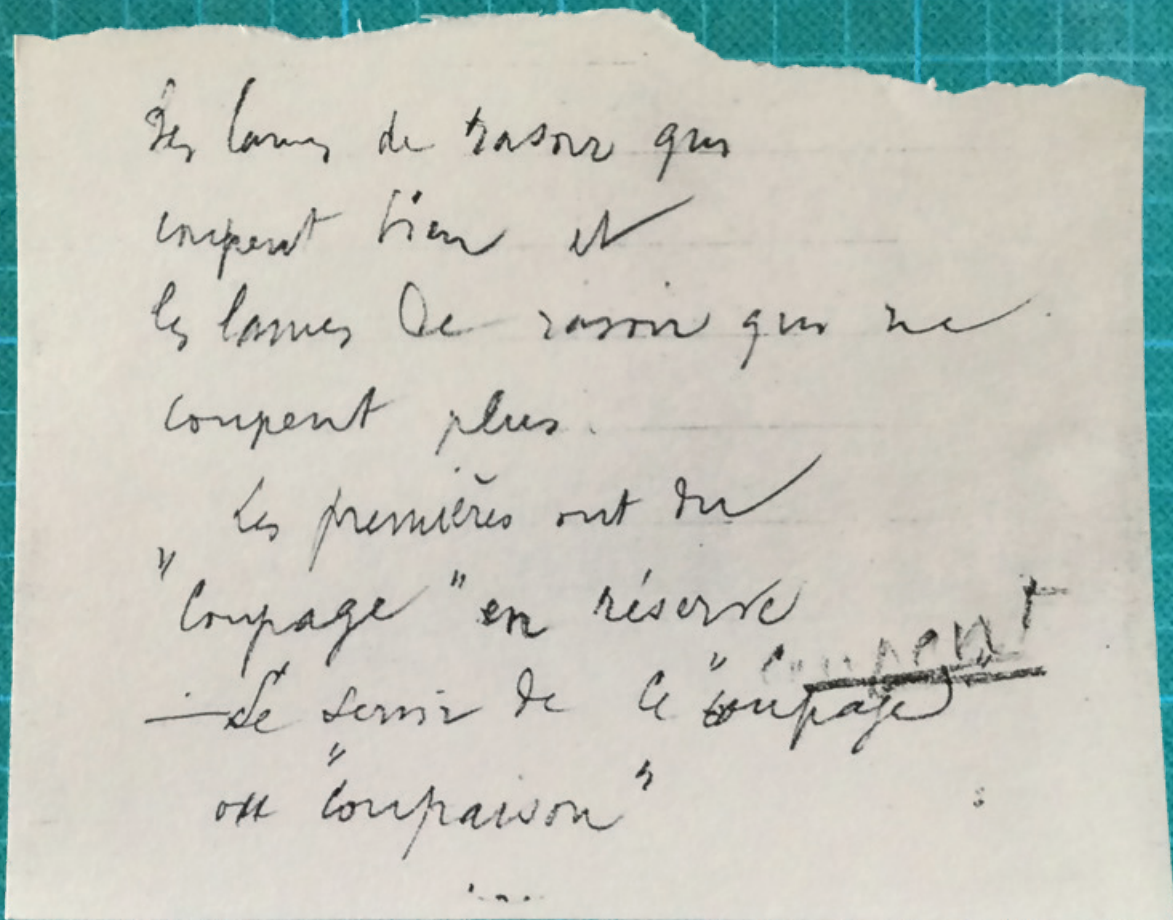 Les lames de rasoir qui
coupent bien et
les lames de rasoir qui ne
coupent plus.
Les premières ont du
"coupage" en réserve
coupent
— Se servir de ce "coupage"
ou "coupaison"